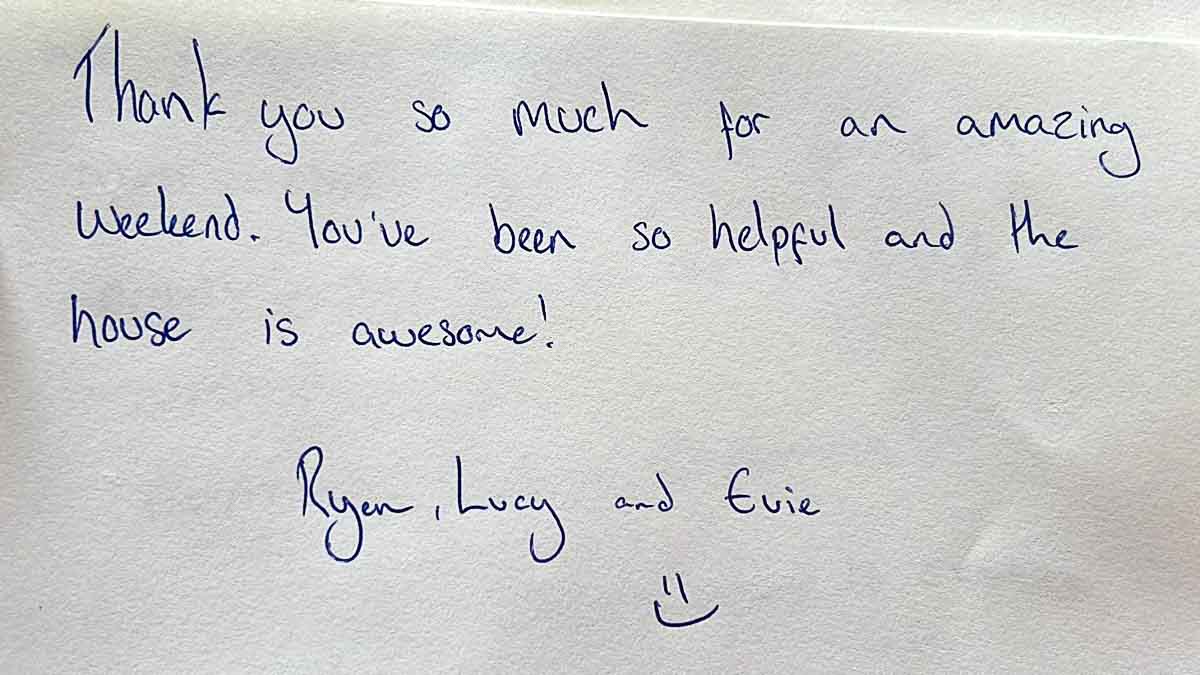 Thank you so much for an amazing
weekend. You've been so helpful and the
house is awesome!
Ryan, Lucy and Evie